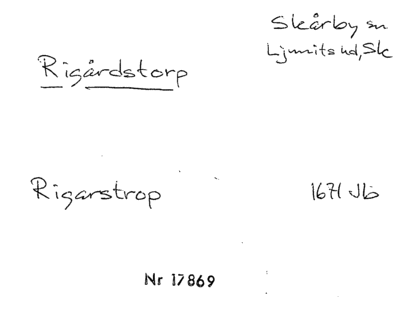 Skårby sn
Ljunits hd, Sk
Rigårdstorp
Rigarstrop
1671 Jb
Nr 17869